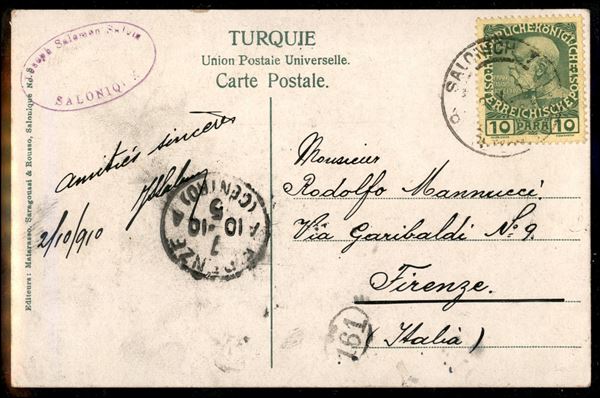 Joseph Salomon Salvia
SALONIQUE
TURQUIE
Union Postale Universelle.
Carte Postale.
SALONICH 1
KAISERLICHE KÖNIGLICHE
OESTERREICHISCHE
10 PARA 10
Amitiés sincères
2/10/910
Monsieur
Rodolfo Mannucci
Via Garibaldi No 9.
Firenze.
(Italia)
FIRENZE
(CENTRO)
10-10
161
Editeurs: Matarasso, Saragoussi & Rousso, Salonique No.